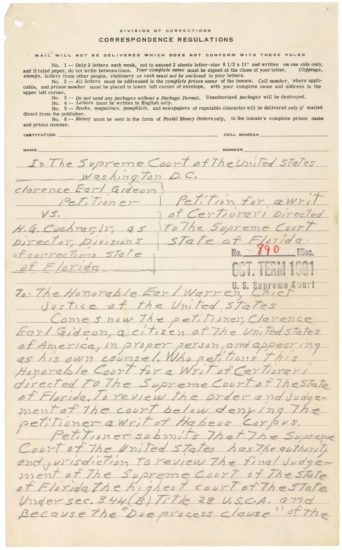 DIVISION OF CORRECTIONS
CORRESPONDENCE REGULATIONS
MAIL WILL NOT BE DELIVERED WHICH DOES NOT CONFORM WITH THESE RULES
No. 1 -- Only 2 letters each week, not to exceed 2 sheets letter-size 8 1/2 x 11" and written on one side only,
and if ruled paper, do not write between lines. Your complete name must be signed at the close of your letter. Clippings,
stamps, letters from other people, stationery or cash must not be enclosed in your letters.
No. 2 -- All letters must be addressed in the complete prison name of the inmate. Cell number, where applicable,
and prison number must be placed in lower left corner of envelope, with your complete name and address in the
upper left corner.
No. 3 -- Do not send any packages without a Package Permit. Unauthorized packages will be destroyed.
No. 4 -- Letters must be written in English only.
No. 5 -- Books, magazines, pamphlets, and newspapers of reputable character will be delivered only if mailed
direct from the publisher.
No. 6 -- Money must be sent in the form of Postal Money Orders only, in the inmate's complete prison name
and prison number.
INSTITUTION CELL NUMBER
NAME NUMBER
In The Supreme Court of The United States
Washington D.C.
Clarence Earl Gideon
Petitioner
vs.
H.G. Cochran, Jr, as
Director, Divisions
of corrections State
of Florida
Petition for a Writ
of Certiorari Directed
to The Supreme Court
State of Florida.
No. 890 Misc.
OCT. TERM 1961
U. S. Supreme Court
To: The Honorable Earl Warren, Chief
Justice of the United States
Comes now the petitioner, Clarence
Earl Gideon, a citizen of The United states
of America, in proper person, and appearing
as his own counsel. Who petitions this
Honorable Court for a Writ of Certiorari
directed to The Supreme Court of The State
of Florida, To review the order and Judge-
ment of the court below denying The
petitioner a writ of Habeus Corpus.
Petitioner submits That The Supreme
Court of The United States has The authority
and jurisdiction to review the final Judge-
ment of The Supreme Court of The State
of Florida the highest court of The State
Under sec. 344(B) Title 28 U.S.C.A. and
Because the "Due process clause" of the